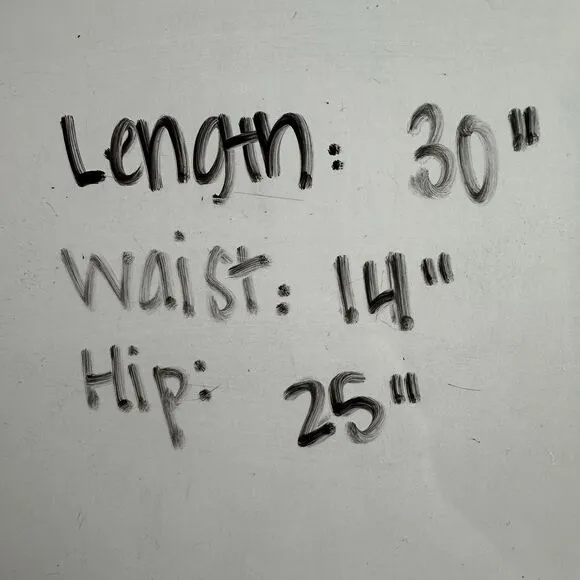 Length: 30"
Waist: 14"
Hip: 25"